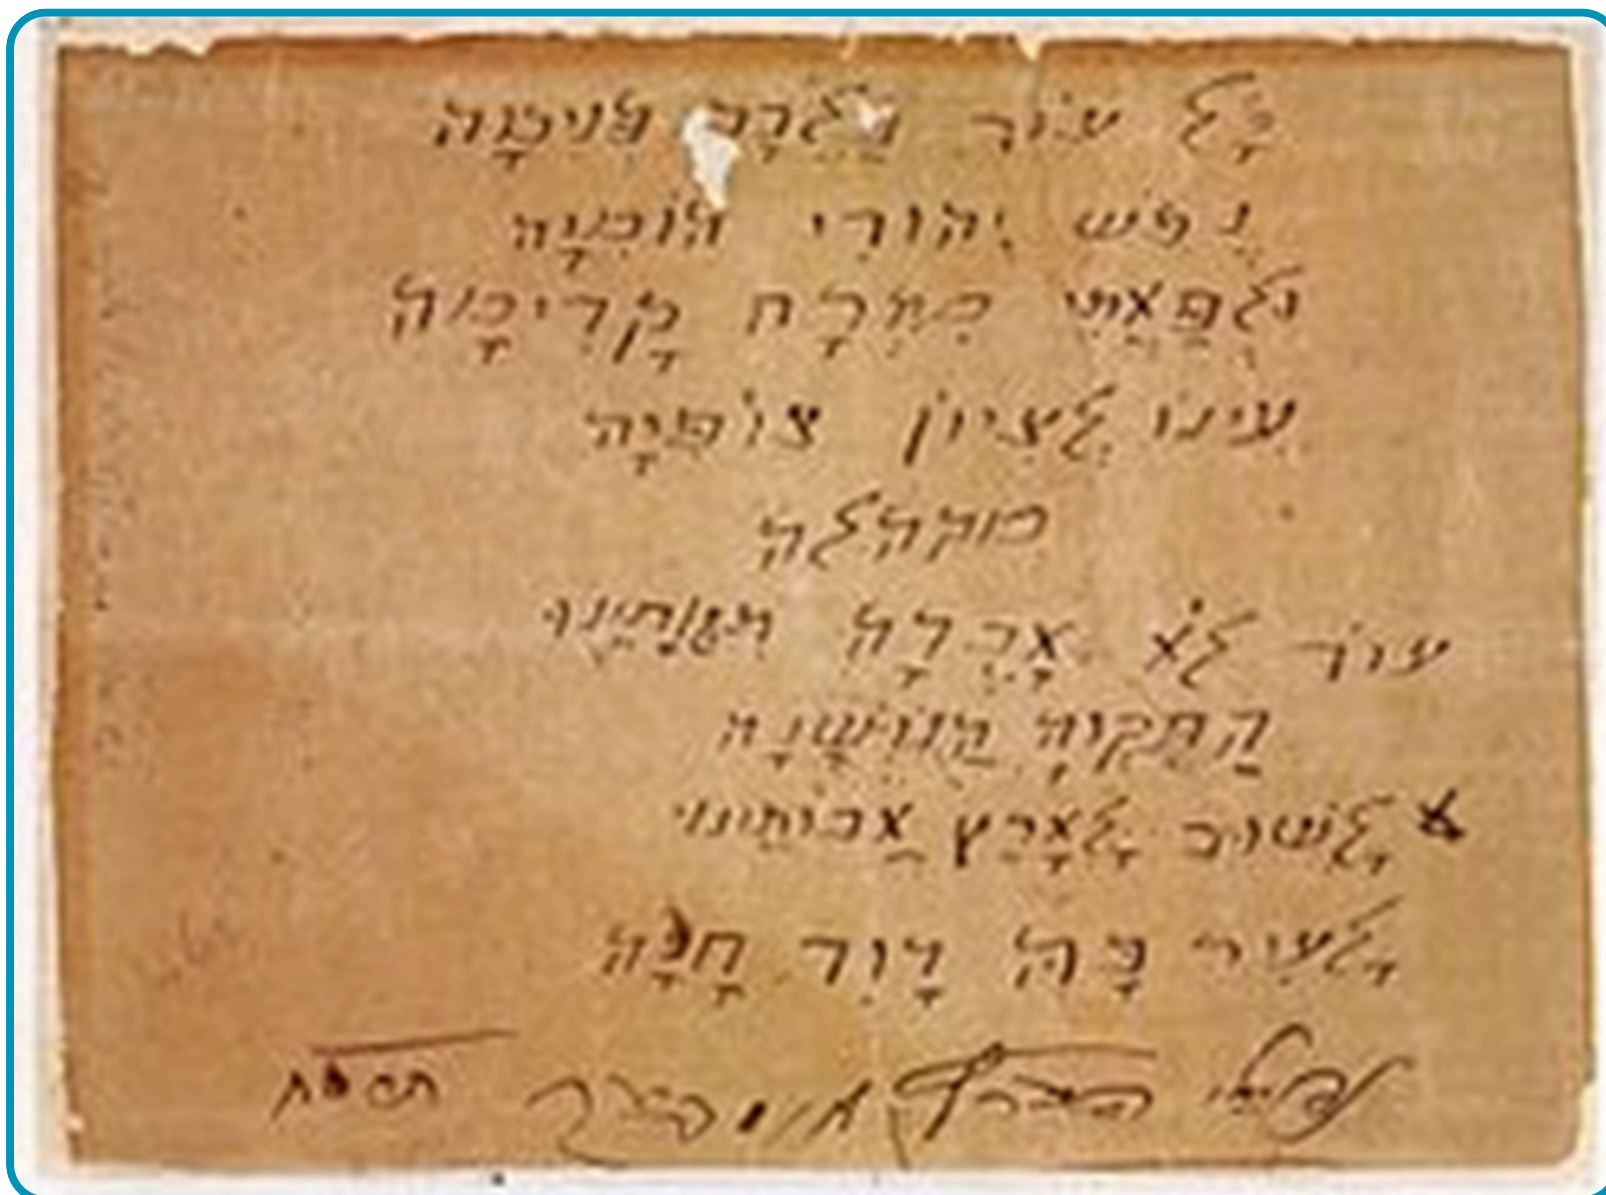 כָּל עוֹד בַּלֵבָב פְּנִימָה
נֶפֶש יְהוּדִי הוֹמִיָה
וּלְפַאֲתֵי מִזְרָח קָדִימָה
עֵינוֹ לְצִיוֹן צוֹפִיָה
מקהלה
עוֹד לֹא אָבְדָה תִּקְוָתֵינוּ
הַתִּקְוָה הַנוֹשָׁנָה
לָשׁוּב לְאֶרֶץ אֲבוֹתֵינוּ
לְעִיר בָּהּ דָוִד חָנָה